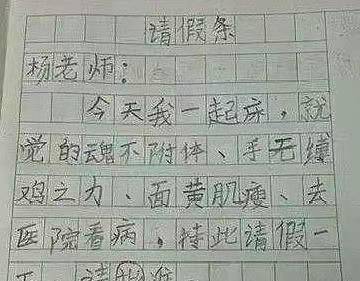 请假条
杨老师：
今天我一起床，就
觉的魂不附体、手无缚
鸡之力、面黄肌瘦、去
医院看病，特此请假一
请批准